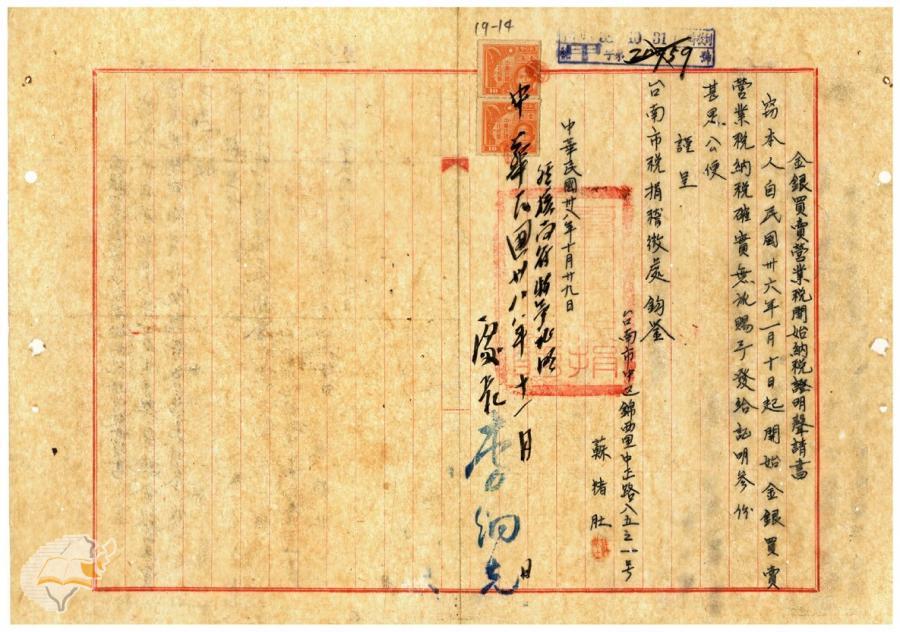 金銀買賣營業税開始納税證明聲請書
竊本人自民国卅六年一月十日起開始金銀買賣
營業税納税確實無訛賜予發給証明參份
甚為公便
謹呈
台南市税捐稽徵處鈞鉴
台南市中区錦西里中正路八五之一号
蘇猪肚
中華民國卅八年十月廿九日
中華民國卅八年十一月 日
處長
19-14
10 31
20759